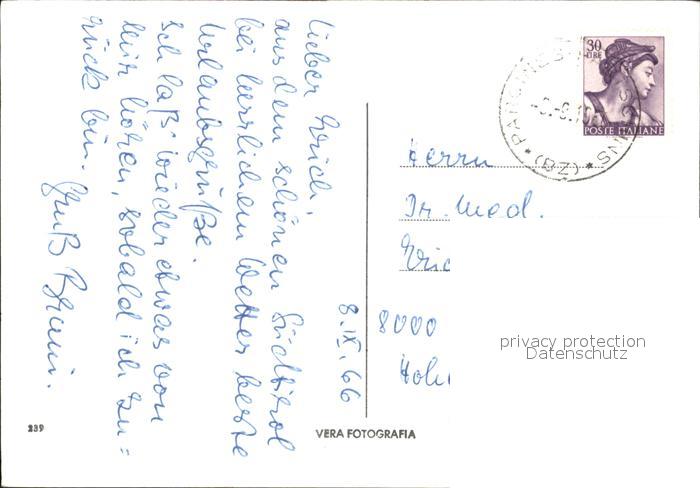 Lieber Erich,
aus dem schönen Südtirol
bei herrlichem Wetter beste
Urlaubsgrüße.
Ich laß' wieder etwas von
mir hören, sobald ich zu=
rück bin.
Gruß
8.IX.66
30
LIRE
POSTE ITALIANE
(BZ)
Herrn
Dr. med.
8000
privacy protection
Datenschutz
239
VERA FOTOGRAFIA